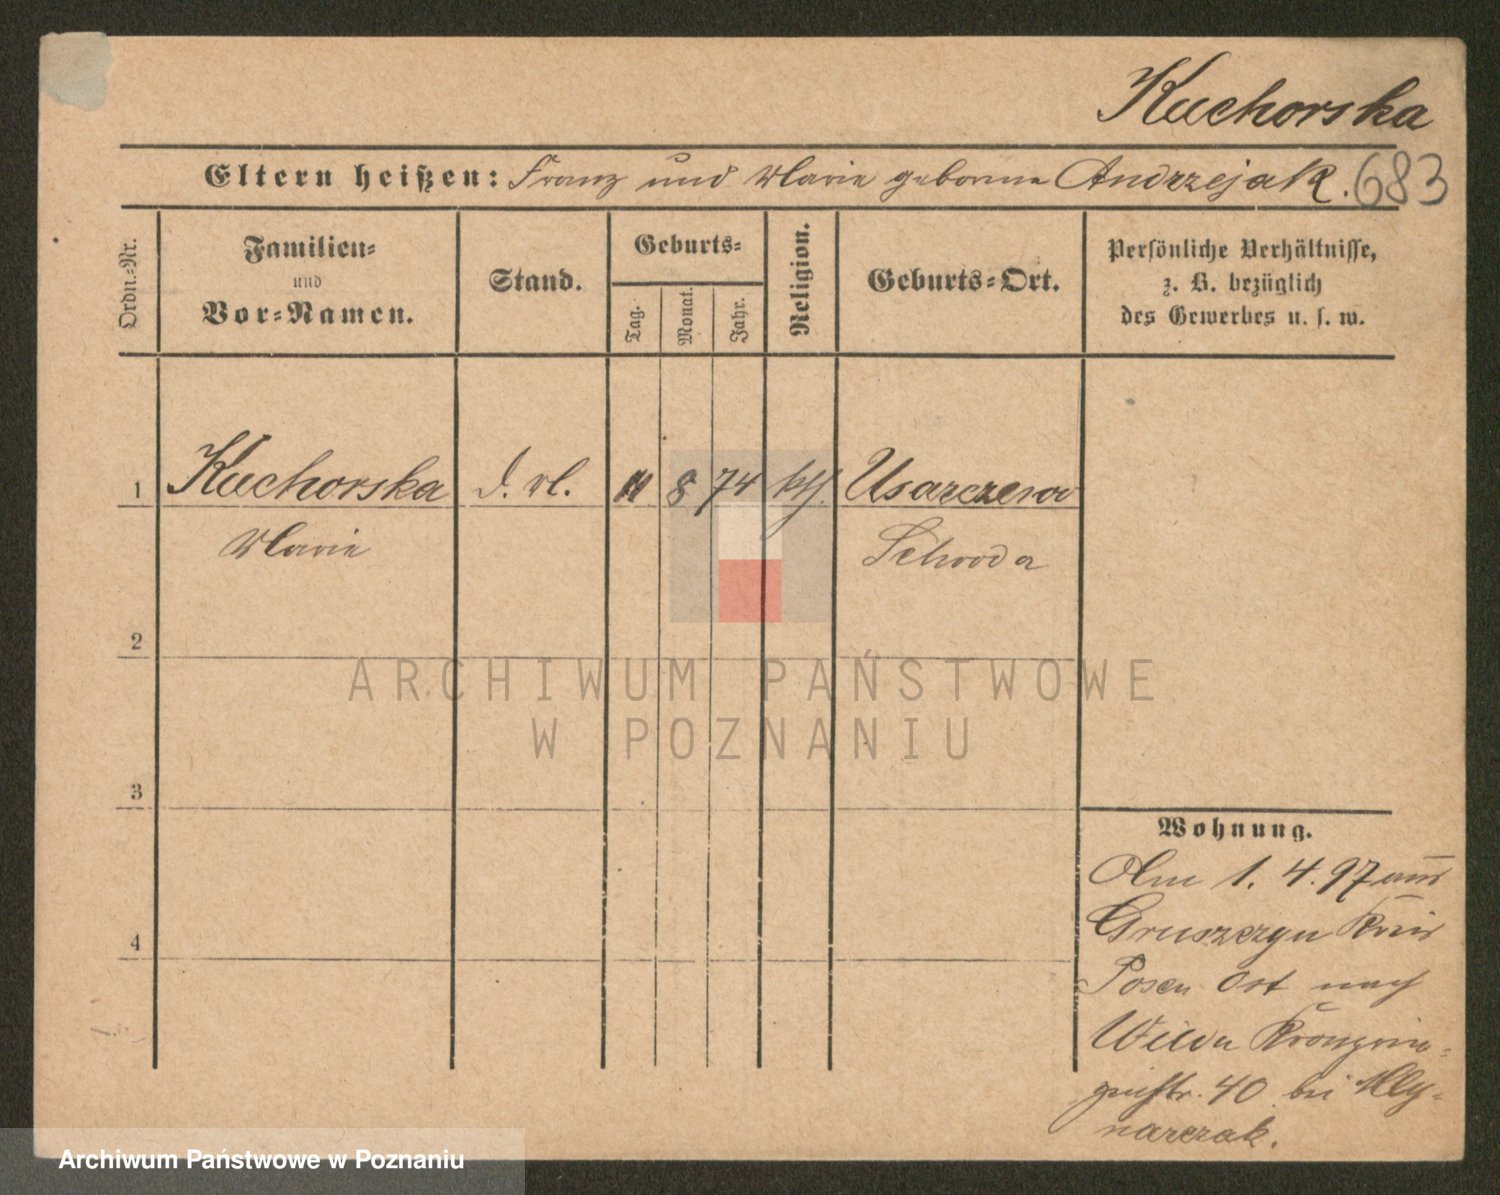 Kuchorska
Eltern heißen: Franz und Marie geborene Andrzejak. 683
Ordn.-Nr.
Familien-
und
Vor-Namen.
Stand.
Geburts-
Tag.
Monat.
Jahr.
Religion.
Geburts-Ort.
Persönliche Verhältnisse,
z. B. bezüglich
des Gewerbes u. s. w.
1 Kuchorska 8 74 kth. Usarzewo
Marie Schroda
2
3
4
Wohnung.
Am 1. 4. 97 aus
Gruszczyn Kreis
Posen Ost nach
Wilda Kronprin-
zenstr. 40 bei Mly-
narczak.
ARCHIWUM PAŃSTWOWE
W POZNANIU
Archiwum Państwowe w Poznaniu